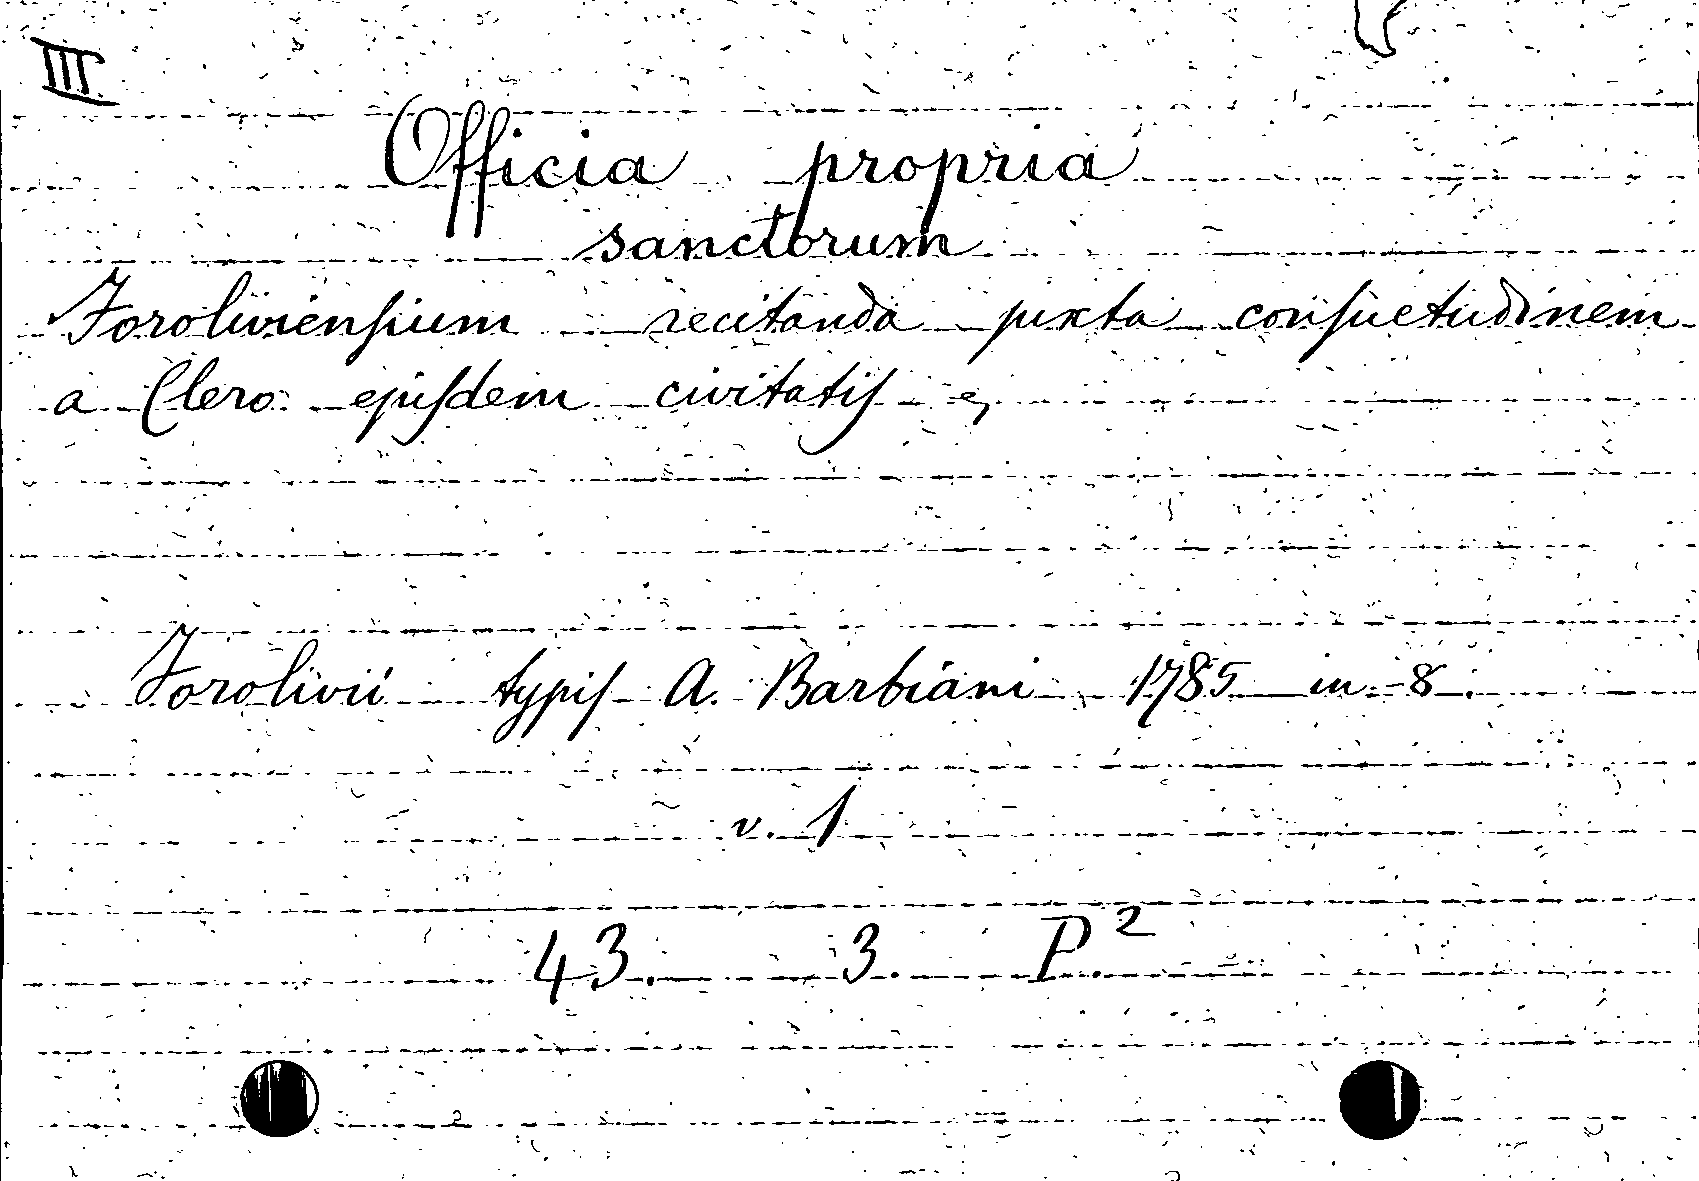 III
Officia propria
sanctorum
Foroliviensium recitanda juxta consuetudinem
a Clero ejusdem civitatis &
Forolivii typis A. Barbiani 1785 in 8.
v. 1
43. 3. P.²